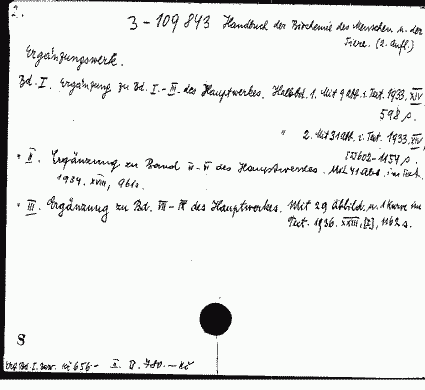 2.
3-109843 Handbuch der Biochemie des Menschen u. der
Tiere. (2. Aufl.)
Ergänzungswerk.
Bd. I. Ergänzung zu Bd. I.-III. des Hauptwerkes. Halbbd. 1. Mit 9 Abb. i. Text. 1933. XIV,
598 s.
" 2. Mit 31 Abb. i. Text. 1933. XIV,
602-1154 s.
" II. Ergänzung zu Band IV-VI des Hauptwerkes. Mit 41 Abb. im Text.
1934. XVIII, 961 s.
" III. Ergänzung zu Bd. VII-IX des Hauptwerkes. Mit 29 Abbild. u. 1 Kurve im
Text. 1936. XXIII, [1], 1162 s.
8
Erg. Bd. I. 656.- II. 780.- Kč